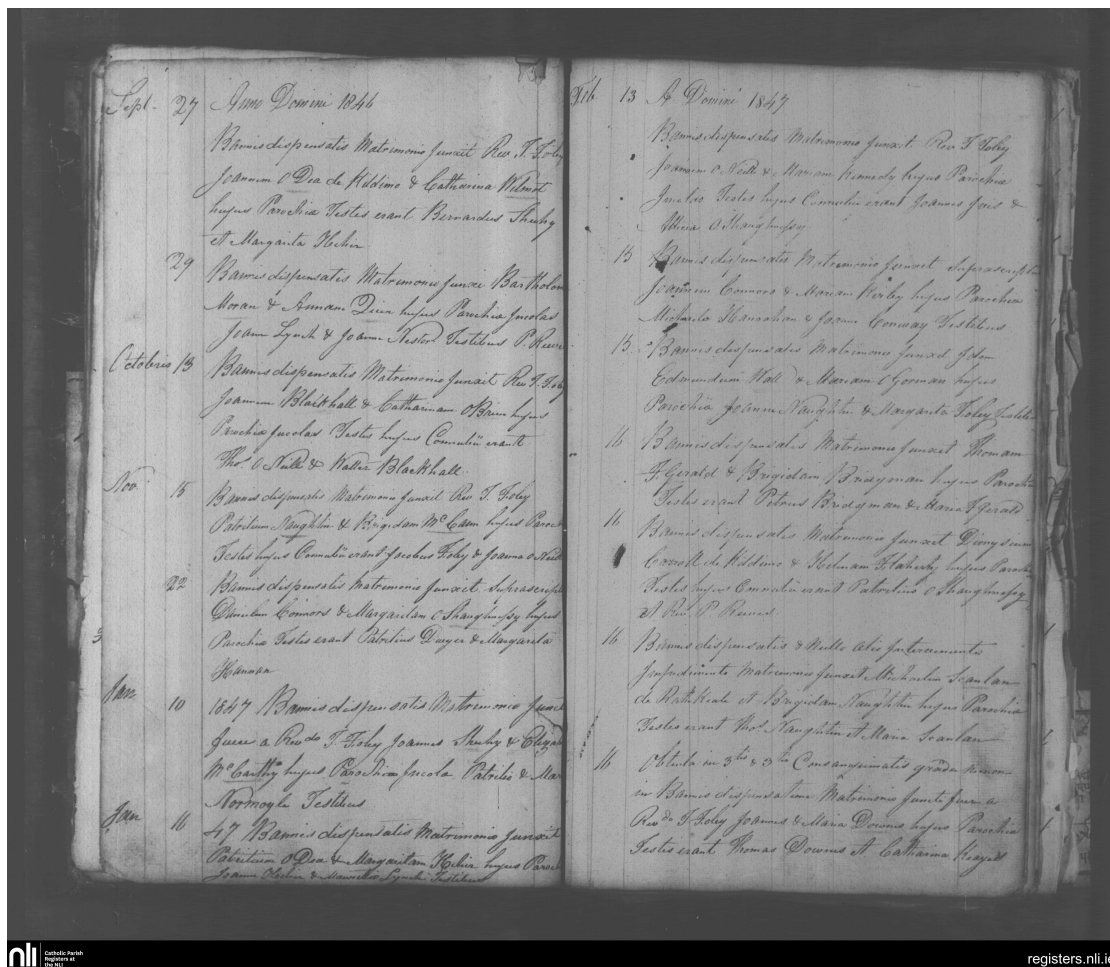 Sept. 27 Anno Domini 1846
Bannis dispensatis Matrimonio junxit Rev. T. Foley
Joannem O Dea de Kildimo & Catharina Wilmot
hujus Parochiæ Testes erant Bernardus Sheehy
et Margarita Heher
29 Bannis dispensatis Matrimonio junxi Bartholom
Moran & Annam Quin hujus Parochiæ Incolas
Joanne Lynch & Joanna Nestor Testibus P. Reeves
Octobris 13 Bannis dispensatis Matrimonio junxit Rev. T. Foley
Joannem Blackhall & Catharinam OBrien hujus
Parochiæ Incolas Testes hujus Connubii erant
Thos. O Neill & Walter Blackhall
Nov 15 Bannis dispensatis Matrimonio junxit Rev. T. Foley
Patritium Naughtin & Brigidam McCann hujus Paroc
Testes hujus Connubii erant Jacobus Foley & Joanna O Neill
22 Bannis dispensatis Matrimonio junxit Suprascript
Danielem Connors & Margaritam O Shaughnessy hujus
Parochiæ Testes erant Patritius Dwyer & Margarita
Hannan
Jan 10 1847 Bannis dispensatis Matrimonio juncti
fuere a Revdo T. Foley Joannes Sheehy & Elizab
McCarthy hujus Parochiæ Incola Patritio & Mar
Normoyle Testibus
Jan 16 47 Bannis dispensatis Matrimonio junxit
Patritium O Dea & Margaritam Heher hujus Paroch
Joanne Heher & Lynch Testibus
Feb 13 A Domini 1847
Bannis dispensatis Matrimonio junxit Rev T Foley
Joannem O Neill & Mariam Kennedy hujus Parochiæ
Testes hujus Connubii erant Joannes &
Alicia O Shaughnessy
13 Bannis dispensatis Matrimonio junxit Suprascript
Joannem Connors & Mariam Kirby hujus Parochiæ
Michaele Hanrahan & Joanna Conway Testibus
13 Bannis dispensatis Matrimonio junxit Idem
Edmundum Wall & Mariam O Gorman hujus
Parochiæ Joanne Naughtin & Margarita Foley Testib
16 Bannis dispensatis Matrimonio junxit Thomam
F.Gerald & Brigidam Bridgman hujus Parochiæ
Testes erant Petrus Bridgman & Maria F.Gerald
16 Bannis dispensatis Matrimonio junxit Dionysium
Carroll de Kildimo & Helenam Flaherty hujus Parochiæ
Testes hujus Connubii erant Patritius O Shaughnessy
et Rev. P. Reeves
16 Bannis dispensatis & Nullo alio Interveniente
Impedimento Matrimonio junxit Michaelem Scanlan
de Rathkeale et Brigidam Naughtin hujus Parochiæ
Testes erant Thos. Naughtin et Maria Scanlan
16 Obtenta in 3tio & 3tio Consanguinitatis gradu necnon
in Bannis dispensatione Matrimonio juncti fuere a
Revdo T. Foley Joannes & Maria Downes hujus Parochiæ
Testes erant Thomas Downes et Catharina Hayes
nli Catholic Parish
Registers at
the NLI
registers.nli.ie